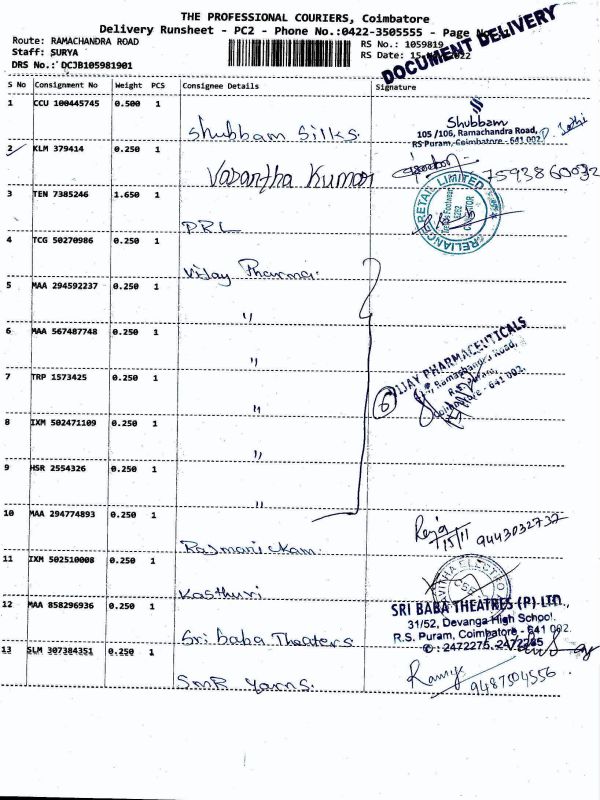 THE PROFESSIONAL COURIERS, Coimbatore
Delivery Runsheet - PC2 - Phone No.:0422-3505555 - Page
DOCUMENT DELIVERY
Route: RAMACHANDRA ROAD
RS No.: 1059819
Staff: SURYA
RS Date: 15-
DRS No.: DCJB105981901
S No Consignment No Weight PCS Consignee Details Signature
1 CCU 100445745 0.500 1 Shubbam Silks.
Shubbam
105 /106, Ramachandra Road,
RS Puram, Coimbatore - 641 002.
2 KLM 379414 0.250 1 Vasantha Kumar 7593860032
3 TEN 7385246 1.650 1 DRL
RELIANCE RETAIL LIMITED
COIMBATORE
4 TCG 50270986 0.250 1 Vijay Pharma.
5 MAA 294592237 0.250 1 "
6 MAA 567487748 0.250 1 "
VIJAY PHARMACEUTICALS
Ramachandra Road,
R.S. Puram,
Coimbatore - 641 002.
7 TRP 1573425 0.250 1 "
6
8 IXM 502471109 0.250 1 "
9 HSR 2554326 0.250 1 "
10 MAA 294774893 0.250 1 Rajmanickam
Raja
15/11 9443032732
11 IXM 502510008 0.250 1 Kasthuri
12 MAA 858296936 0.250 1 Sri Baba Theaters
SRI BABA THEATRES (P) LTD.,
31/52, Devanga High School.
R.S. Puram, Coimbatore - 641 002.
✆ : 2472275, 2472285
13 SLM 307384351 0.250 1 SMR Yarns.
Ramya
9487504556